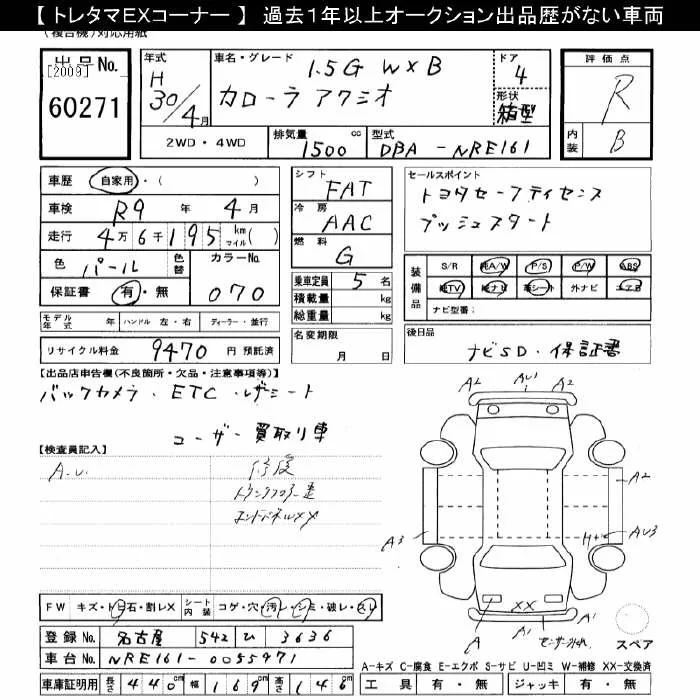 【 トレタマEXコーナー 】 過去１年以上オークション出品歴がない車両
(複合機)対応用紙
出品No.
[2009]
60271
年式
H
30/4月
車名・グレード
1.5G W×B
カローラ アクシオ
ドア
4
形状
箱型
評価点
R
内装
B
2WD・4WD
排気量 cc
1500
型式
DBA-NRE161
車歴 自家用・( )
車検 R9年4月
走行 4万6千195 km マイル( )
色 パール 色替 カラーNo. 070
保証書 有・無
シフト FAT
冷房 AAC
燃料 G
乗車定員 5名
積載量 kg
総重量 kg
名変期限
月 日
セールスポイント
トヨタセーフティセンス
プッシュスタート
装備品
S/R 純A/W P/S P/W ABS
純TV 純ナビ 革シート 外ナビ エアB
ナビ型番:
後日品
ナビSD・保証書
モデル年式 年 ハンドル 左・右 ディーラー・並行
リサイクル料金 9470 円 預託済
【出品店申告欄(不良箇所・欠品・注意事項等)】
バックカメラ・ETC・レザーシート
ユーザー買取り車
【検査員記入】
A.U. 修復
トランクフロアー歪
エンドパネルXX
A2 AU1 A2
A2
A3 H+ AU3
XX
A A1 A1
スペア
FW キズ・トビ石・割レX シート内装 コゲ・穴・汚レ・シミ・破レ・スレ
登録No. 名古屋 542 ひ 3636
車台No. NRE161-0055971
車庫証明用 長さ 440cm 幅 169cm 高さ 146cm
A-キズ C-腐食 E-エクボ S-サビ U-凹ミ W-補修 XX-交換済
工具 有・無 ジャッキ 有・無